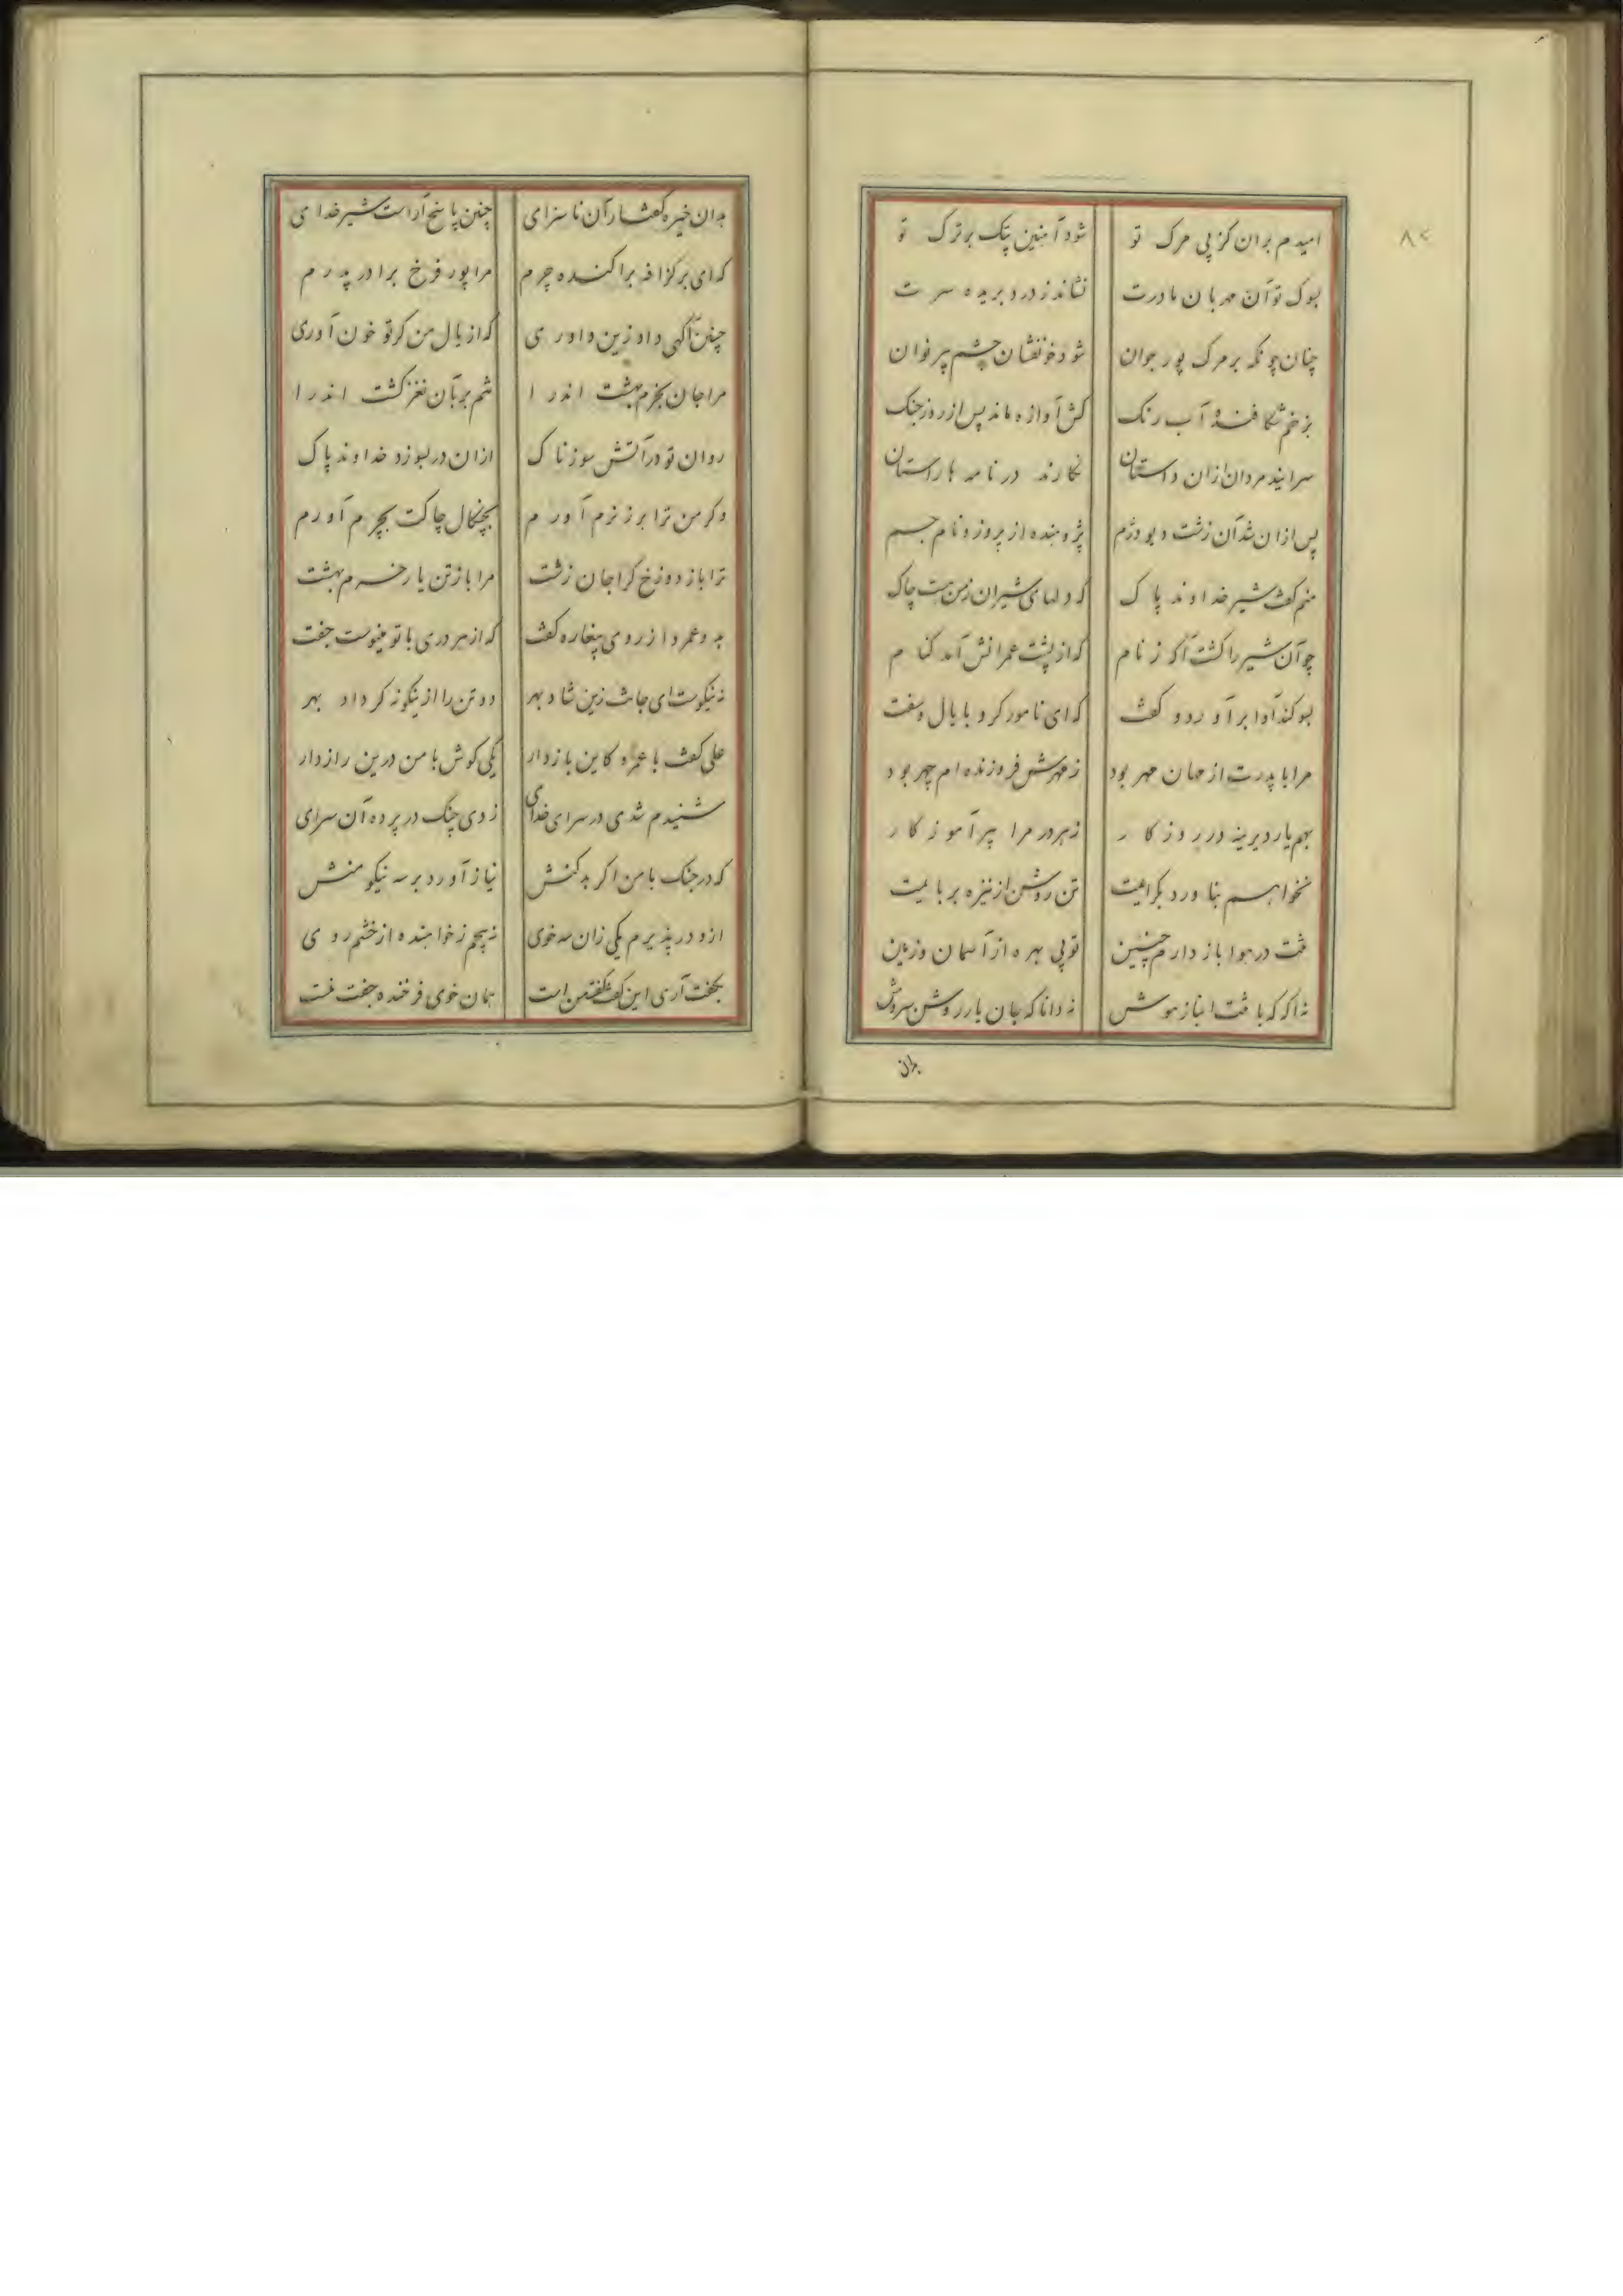 ۸۲
امیدم بران کز پی مرک تو شود آهنین پتک بر ترک تو
بسوک تو آن مهربان مادرت نشاند ز درد بریده سرت
چنان چونکه بر مرک پور جوان شود خونفشان چشم پیر نوان
بزخم شکافنده آب رنک کش آوازه ماند پس از روز جنک
سرایند مردان ازان داستان نکارند در نامه باراستان
پس ازان شد آن زشت دیو دژم پژوهنده از پروز و نام جم
منم کفت شیر خداوند پاک که دلهای شیران زمن هست چاک
چو آن شیر را کشت آکه ز نام که از پشت عمرانش آمد کنام
بسوکند آوا برآورد و کفت که ای نامور کرد با یال و سفت
مرا با پدرت از مهان مهر بود ز مهرش فروزنده ام چهر بود
بهم یار دیرینه در روزکار ز هر در مرا پیر آموزکار
نخواهم بناورد بکرایمت تن روشن از نیزه بربایمت
مت در هوا باز دارم چنین تو بی بهره از آسمان و زمین
نه اکه که با مت انباز هوش نه دانا که جان یار روشن سروش
بدان
بدان خیره کفتار آن ناسزای چنین پاسخ آراست شیر خدای
که ای بر کزافه براکنده چرم مرا پور فرخ برادر پدرم
چنین آکهی داد زین داوری که از یال من کر تو خون آوری
مرا جان بخرم بهشت اندرا تنم بر بآن نغز کشت اندرا
روان تو در آتش سوزناک ازان در بسوزد خداوند پاک
وکر من ترا برز نرم آورم بچنکال چاکت بچرم آورم
ترا باز دوزخ کرا جان زشت مرا باز تن یار خرم بهشت
بدو عمرو از روی پیغاره کفت که از هر دری با تو مینوست جفت
نه نیکوست ای جانت زین شاد بهر دو تن را ازینکونه کرداد بهر
علی کفت با عمرو کاین باز دار یکی کوش با من درین راز دار
شنیدم شدی در سرای خدای زدی چنک در پرده آن سرای
که در جنک با من اکر بدکنش نیاز آورد بر سه نیکو منش
ازو در پذیرم یکی زان سه خوی نه پیچم ز خواهنده از خشم روی
بکفت آری این کفت کفت من است همان خوی فرخنده جفت منست